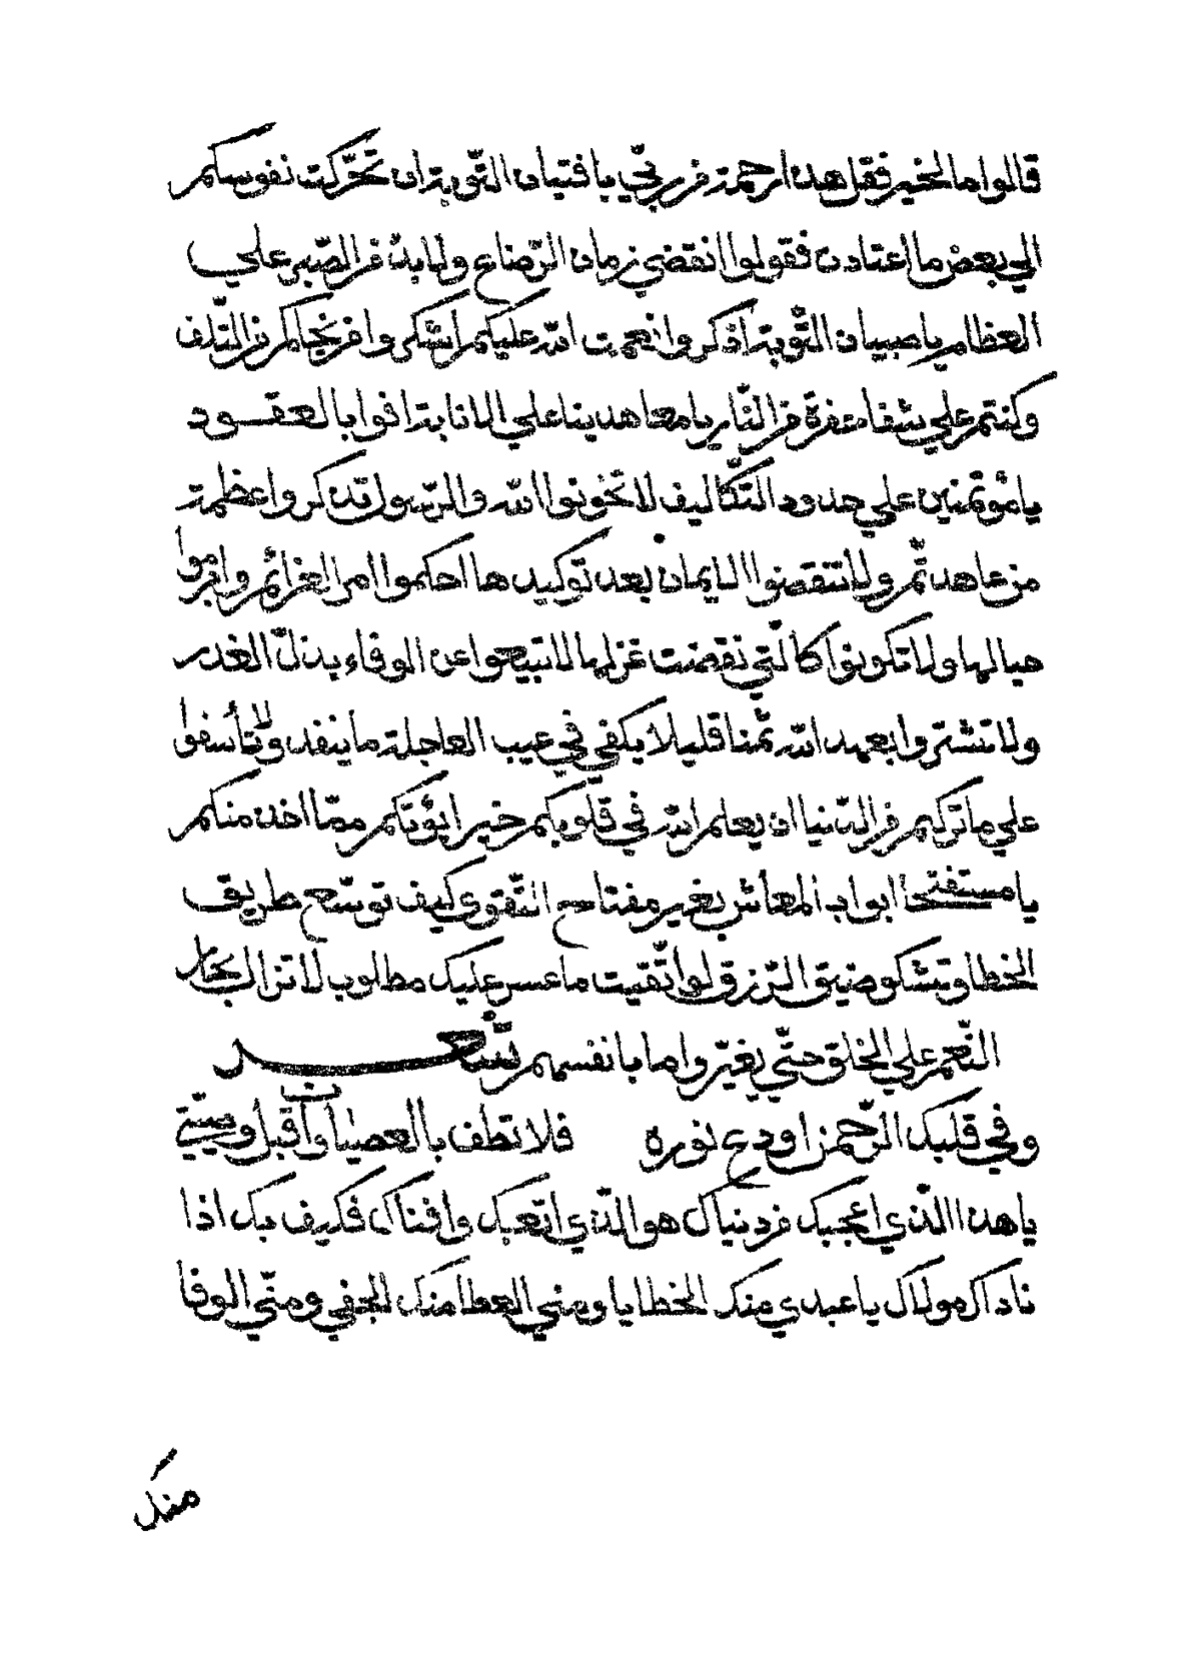 قالوا ما الخبر فقل هذا رحمة من ربّي يا فتيان التّوبة ان تحرّكت نفوسكم
الي بعض ما اعتادت فقولوا انقضي زمان الرّضاع ولا بدّ من الصّبر علي
العظام يا صبيان التّوبة اذكروا نعمت الله عليكم اشكروا من نجاكم من التّلف
وكنتم علي شفا حفرة من النّار يا معاهدينا علي الانابة اوفوا بالعقود
يا مؤتمنين علي حدود التّكاليف لا تخونوا الله والرّسول تذكروا عظمة
من عاهدتّم ولا تنقضوا الايمان بعد توكيدها احكموا امر العزائم وابرموا
حبالها ولا تكونوا كالّتي نقضت غزلها لا تبيعوا عن الوفاء بذلّ الغدر
ولا تشتروا بعهد الله ثمنا قليلا يكفي في عيب العاجلة ما ينفد ولا تأسفوا
علي ما تركتم من الدّنيا ان يعلم الله في قلوبكم خيرا يؤتكم ممّا اخذ منكم
يا مستفتحا ابواب المعاش بغير مفتاح التّقوي كيف توسّع طريق
الخطا وتشكو ضيق الرّزق لو اتّقيت ما عسر عليك مطلوب لا تزال بحار
النّعم علي الخلق حتّي يغيّروا ما بانفسهم شعر
وفي قلبك الرّحمن اودع نوره فلا تطف بالعصيان واقبل وصيّتي
يا هذا الّذي اعجبك من دنياك هو الّذي اتعبك وافناك فكيف بك اذا
ناداك مولاك يا عبدي منك الخطايا ومني العطا منك الجفي ومنّي الوفا
منك